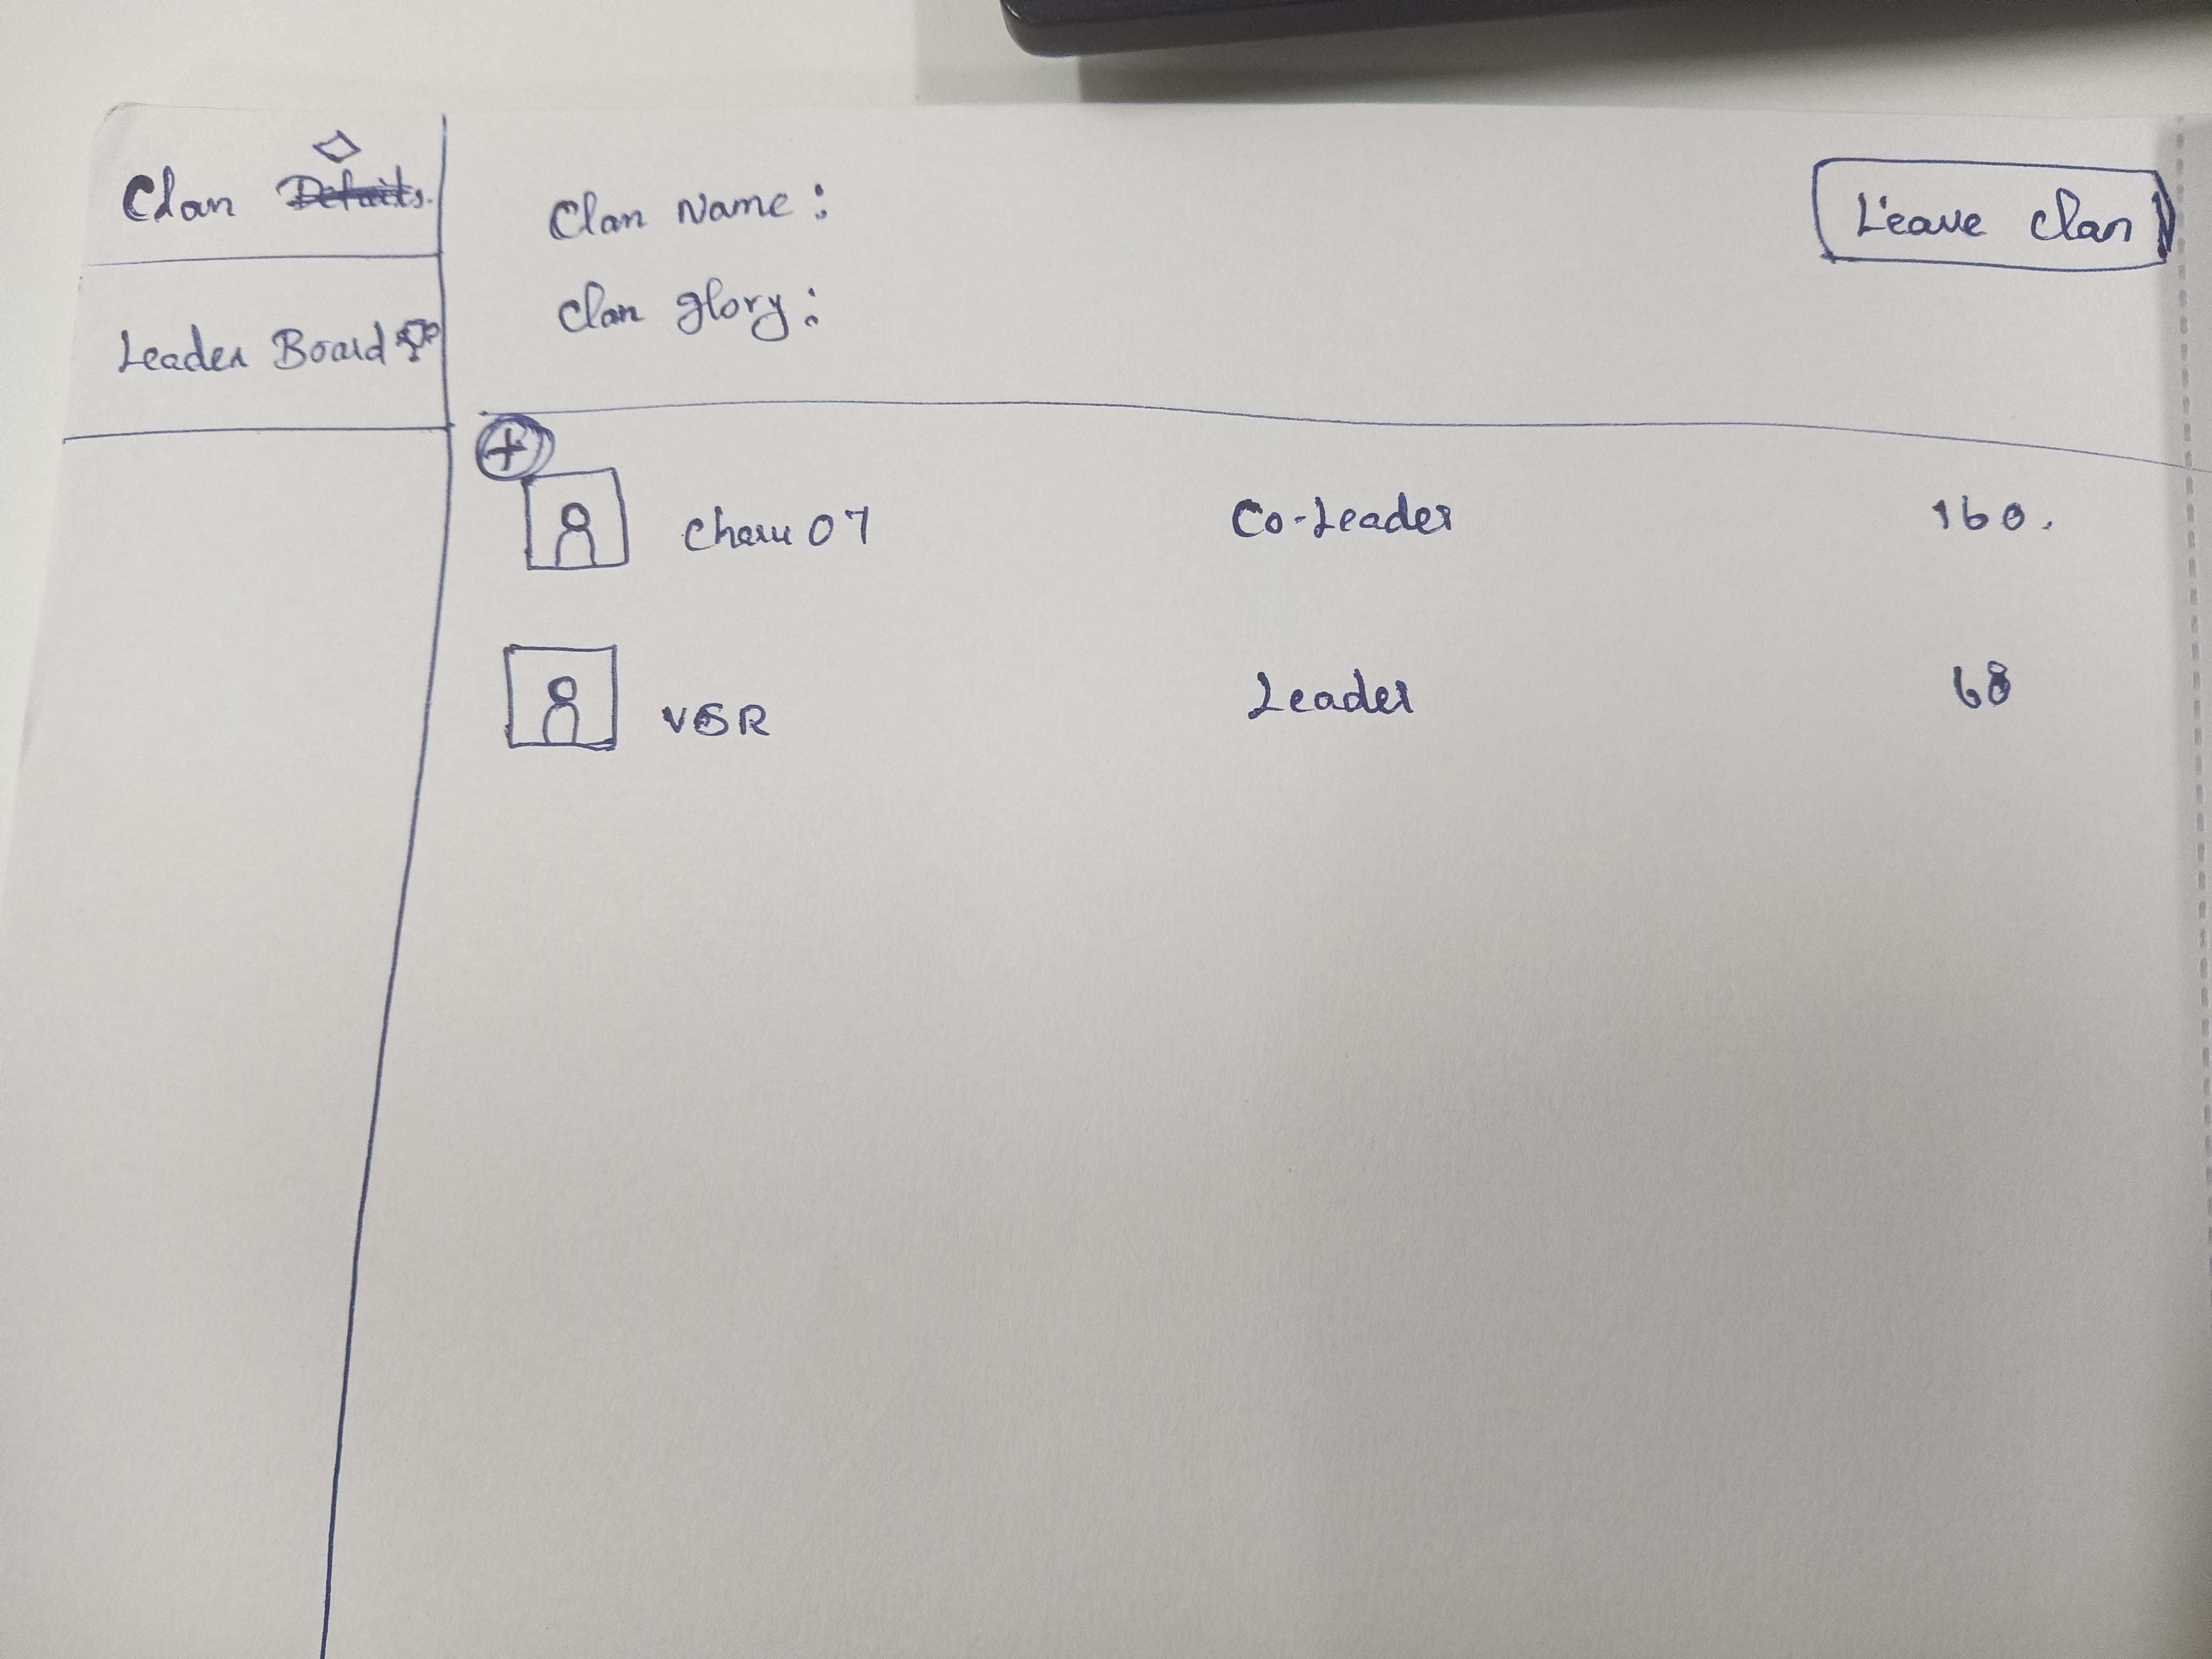 Clan Details.
Leader Board
Clan Name :
Clan glory :
Leave Clan
+
Charu 07
Co-Leader
160.
VSR
Leader
68